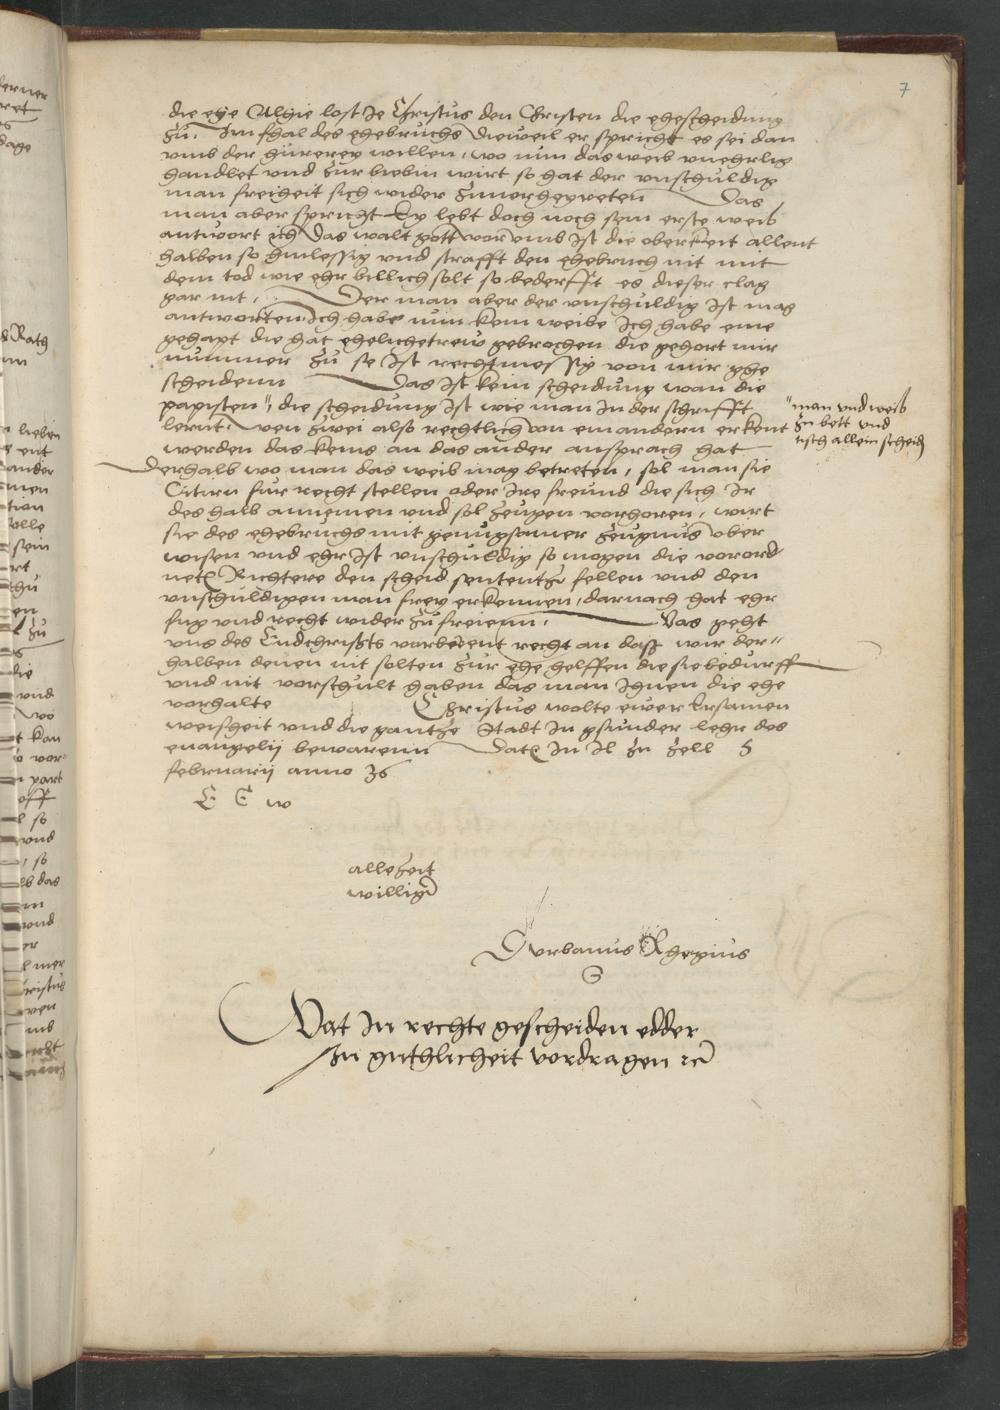 7
die ehe Alhie lost Je Christus den Christen die ehescheidung
zu. Jm fhal des ehebruchs dieweil er spricht es sei dan
vmb der hurerey willen, wo nun das weib vnehrlig
handlet und zur biebin wirt so hat der vnschuldig
man freiheit sich wider zuuorheyreten Das
man aber spricht Ey lebt doch noch sein erste weib
antwort ich Das walt gott worumb ist die oberkeit allent
halben so hinlessig vnd strafft den ehebruch nit mit
dem tod wie ehr billich solt so bederfft es dieser clag
gar nit, Der man aber der vnschuldig ist mag
antworten Jch habe nun kein weibe Jch habe eine
gehapt die hat ehelichetrew gebrochen die gehort mir
nummer zu se ist rechtmessig von mir ghe
scheidenn Das ist kein scheidung wan die
papisten", die scheidung ist wie man in der schrifft
lernt. wen zwei also rechtlich von einandern erkent
werden das keins an das ander ansprach hat
"man vnd weib
zu bett vnd
tisch allein scheid
Derhalb wo man das weib mag betreten, sol man sie
Citirn fur recht stellen oder ire freund die sich ir
des halb annemen vnd sol zeugen vorhoren, wirt
sie des ehebruchs mit genugsamer zeugnus vber
wisen vnd ehr ist vnschuldig so mogen die vorord
net Richtere den scheid sententz fellen vnd den
vnschuldigen man frey erkennen, darnach hat ehr
fug vnd recht wider zu freienn. Was geht
vns des Endchrists recht an dass wir der"
halben denen nit solten zur ehe helffen die sie bedurff
vnd nit vorschult haben das man ihnen die ehe
vorhalte Christus wolte ewer Ersamen
weisheit vnd die gantze Stadt in gsunder lehr des
euangelij bewarenn Dat in zu zell 5
februarij anno 36
E E w
allezeit
williger
D vrbanus Rhegius
S
Wat in rechte gescheiden edder
in guthlicheit vordragen